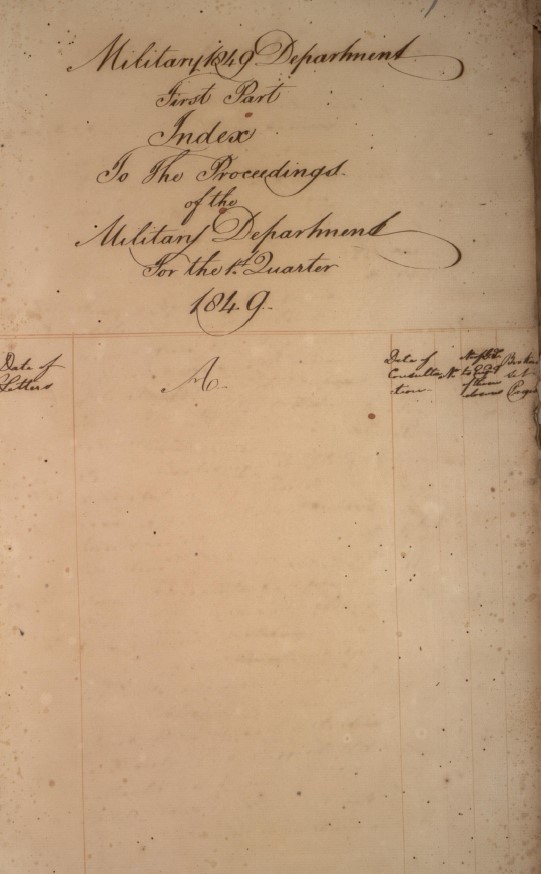 Military 1849 Department
First Part
Index
To The Proceedings
of the
Military Department
For the 1st Quarter
1849.
Date of
Letters
A.
Date of
Consulta
tion
No.
to
of them
Books
Pages